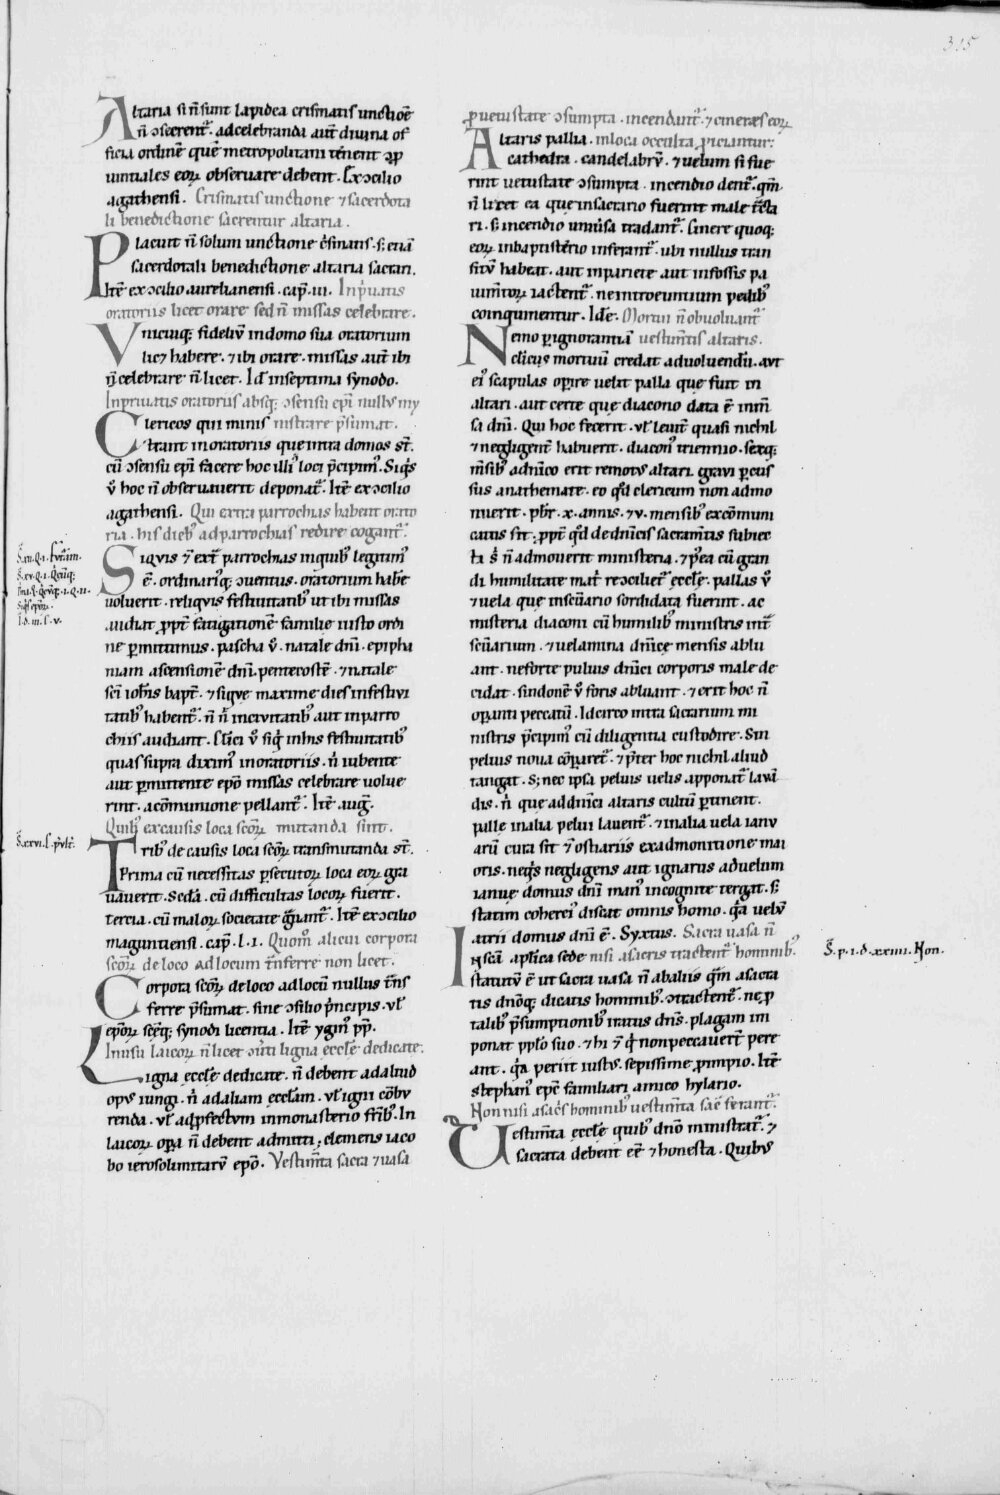 315
Altaria si n̄ sunt lapidea crismatis unctiōe
n̄ ↄsecrent᷑. ad celebranda aut̄ diuina of
ficia ordinē quē metropolitani tenent ↄp
uintiales eoꝝ obseruare debent. Ex ↄcilio
agathensi. Crismatis unctione ⁊ sacerdota
li benedictione sacrentur altaria.
Placuit n̄ solum unctione c̄smatis. s; etiā
sacerdotali benedictione altaria sacrari.
Itē ex ↄcilio aurelianensi. cap̄. iii. In p̱uatis
oratoriis licet orare sed n̄ missas celebrare.
Vnicuiq; fideliū in domo sua oratorium
lic⁊ habere. ⁊ ibi orare. missas aut̄ ibi
n̄ celebrare n̄ licet. Id̄ in septima synodo.
In priuatis oratoriis absq; ↄsensu ep̄i nullus my
Clericos qui minis nistrare p̄sumat.
trant in oratoriis que intra domos st̄.
cū ↄsensu ep̄i facere hoc illi᷒ loci p̄cipim᷒. Siq̄s
ū hoc n̄ obseruauerit deponat᷑. Itē ex ↄcilio
agathensi. Qui extra parrochias habent orato
ria. his dieb᷒ ad parrochias redire cogant᷑.
Siquis ⁊ ext̄ parrochias in quib᷒ legitim᷒
ē. ordinari᷒q; ↄuentus. oratorium habē
uoluerit. reliquis festiuitatib᷒ ut ibi missas
audiat ꝓpt̄ fatigationē familie iusto ordi
ne ꝑmittimus. pascha ū. natale dn̄i. epipha
niam ascensionē dn̄i. pentecostē. ⁊ natale
sc̄i ioh̄is bapt̄. ⁊ siqui maxime dies in festiui
tatib᷒ habent᷑. n̄ n̄ in ciuitatib᷒ aut in parro
chiis audiant. Cl̄ici ū siq̄ in his festiuitatib᷒
quas supra dixim᷒ in oratoriis. n̄ iubente
aut ꝑmittente ep̄o missas celebrare uolue
rint. a cōmunione pellant᷑. Itē auḡ.
Quib᷒ ex causis loca sc̄oꝝ mutanda sint.
Trib᷒ de causis loca sc̄oꝝ transmutanda st̄.
Prima cū necessitas ꝑsecutoꝝ loca eoꝝ gra
uauerit. Scd̄a. cū difficultas locoꝝ fuerit.
tercia. cū maloꝝ societate g̱uant᷑. Itē ex ↄcilio
maguntiensi. cap̄. l. i. Quom̄ alicui corpora
sc̄oꝝ de loco ad locum t̄nferre non licet.
Corpora sc̄oꝝ de loco ad locū nullus t̄ns
ferre p̄sumat. sine ↄsilio p̱ncipis. ul̄
ep̄oꝝ sc̄eq; synodi licentia. Itē ygin᷒ p̄p̄.
In usu laicoꝝ n̄ licet ↄu̇ti ligna eccl̄e dedicate.
Ligna eccl̄e dedicate. n̄ debent ad aliud
opus iungi. n̄ ad aliam eccl̄am. ul̄ igni cōbu
renda. ul̄ ad ꝓfectum in monasterio frīb᷒. In
laicoꝝ oꝑa n̄ debent admitti; clemens iaco
bo ierosolimitarū ep̄o. Vestim̄ta sacra ⁊ uasa
ꝓ uetustate ↄsumpta. incendunt᷑. ⁊ cineres eoꝝ
Altaris pallia. in loca occulta ꝓiciuntur:
cathedra. candelabrū. ⁊ uelum si fue
rint uetustate ↄsumpta. incendio dent᷑. qm̄
n̄ licet ea que in sacrario fuerint male t̄cta
ri. s; incendio uniu̇sa tradant᷑. Cinere quoq;
eoꝝ in baptisterio inferant᷑. ubi nullus tran
sitū habeat. aut in pariete aut in fossis pa
uim̄toꝝ iactent᷑. ne introeuntium pedib᷒
coinquinentur. Idē. Mortui n̄ obuoluant᷑
Nemo ꝑ ignorantiā uestim̄tis altaris.
clericus mortuū credat aduoluendū. aut
ei᷒ scapulas oꝑire uelit palla que fuit in
altari. aut certe que diacono data ē in m̄
sa dn̄i. Qui hoc fecerit. ul̄ leuit̄ quasi nichil
⁊ negligent̄ habuerit. diacon᷒ triennio. sexq;
m̄sib᷒ a dn̄ico erit remotus altari. graui ꝑcus
sus anathemate. eo qd̄ clericum non admo
nuerit. pb̄r. x. annis. ⁊ u. mensib᷒ excōmuni
catus sit. ꝓpt̄ qd̄ de dn̄icis sacram̄tis subiec
ti s̄ n̄ admouerit ministeria. ⁊ p̄ea cū gran
di humilitate mat̄ recↄciliet᷑ eccl̄e. pallas ū
⁊ uela que in sc̄uario sordidata fuerint. ac
misteria diaconi cū humilib᷒ ministris int̄
sc̄uarium. ⁊ uelamina dn̄ice mensis ablu
ant. ne forte puluis dn̄ici corporis male de
cidat. sindonē ū foris abluant. ⁊ erit hoc n̄
oꝑanti peccatū. Idcirco intra sacrarium mi
nistris p̄cipim᷒ cū diligentia custodire. Sin
peluis noua cōꝑet᷑. ⁊ p̄ter hoc nichil aliud
tangat. S; nec ipsa peluis uelis apponat᷑ laua̅
dis. n̄ que ad dn̄ici altaris cultū ꝑtinent.
palle in alia pelui lauent᷑. ⁊ in alia uela ianu
arū cura sit ⁊ ostiariis ex admonitione mai
oris. ne q̄s negligens aut ignarus ad uelum
ianue domus dn̄i man᷒ incognite tergat. s;
statim coherci᷒ discat omnis homo. q̄a uelū
atrii domus dn̄i ē. Syxtus. Sacra uasa n̄
In sc̄a aplica sede nisi a sacris tractent᷑ hominib᷒.
statutū ē ut sacra uasa n̄ ab aliis qm̄ a sacra
tis dnōq; dicatis hominib᷒. ↄtractent᷑. ne ꝓ
talib᷒ p̄sumptionib᷒ iratus dn̄s. plagam im
ponat pplo suo. ⁊ hi ⁊ q̄ non peccauert̄ pere
ant. q̄a perit iustus. sepissime ꝓ impio. Itē
stephan᷒ ep̄c familiari amico hylario.
Non nisi a sac̄s hominib᷒ uestim̄ta sac̄e ferant᷑.
Vestim̄ta eccl̄e quib᷒ dnō ministrat᷑. ⁊
sacrata debent eē ⁊ honesta. Quibus
S. xxvi. l. pult̄.
S. p. i. d. xxiiii. Non.